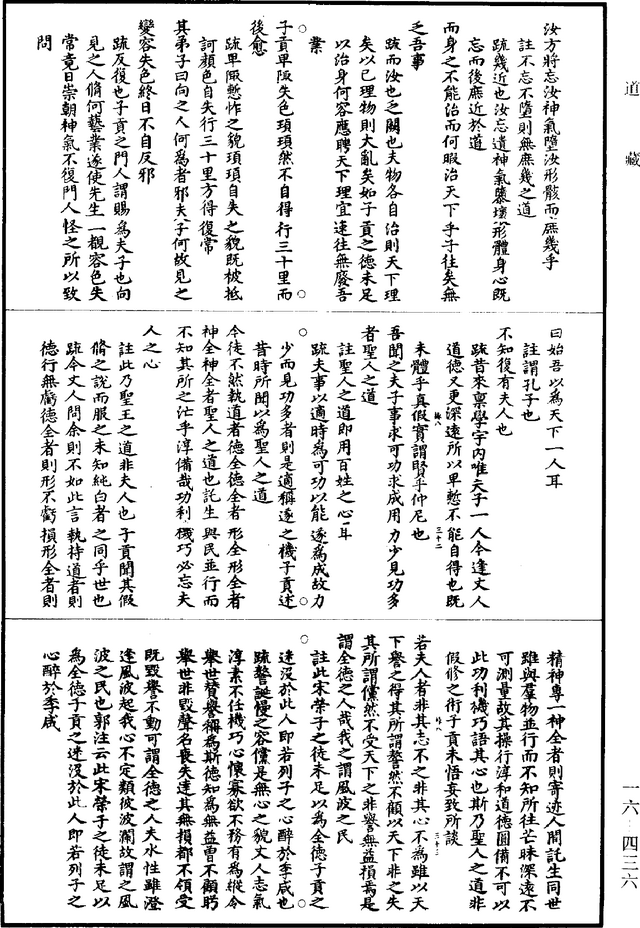 道藏
汝方將忘汝神氣墮汝形骸而庶幾乎
註不忘不墮則無庶幾之道
疏幾近也汝忘遺神氣隳壞形體身心既
忘而後庶近於道
而身之不能治而何暇治天下乎子往矣無
乏吾事
疏而汝也乏闕也夫物各自治則天下理
矣以己理物則大亂矣如子貢之德未足
以治身何容應聘天下理宜速往無廢吾
業
子貢卑陬失色頊頊然不自得行三十里而
後愈
疏卑陬慙怍之貌頊頊自失之貌既被抵
訶顏色自失行三十里方得復常
其弟子曰向之人何為者邪夫子何故見之
變容失色終日不自反邪
疏反復也子貢之門人謂賜為夫子也向
見之人脩何藝業遂使先生一覩容色失
常竟日崇朝神氣不復門人怪之所以致
問
曰始吾以為天下一人耳
註謂孔子也
不知復有夫人也
疏昔來稟學宇內唯夫子一人今逢丈人
道德又更深遠所以卑慙不能自得也既
未體乎真假實謂賢乎仲尼也
吾聞之夫子事求可功求成用力少見功多
者聖人之道
註聖人之道即用百姓之心耳
疏夫事以適時為可功以能遂為成故力
少而見功多者則是適稱遂之機子貢述
昔時所聞以為聖人之道
今徒不然執道者德全德全者形全形全者
神全神全者聖人之道也託生與民並行而
不知其所之汒乎淳備哉功利機巧必忘夫
人之心
註此乃聖王之道非夫人也子貢聞其假
脩之說而服之未知純白者之同乎世也
疏今丈人問余則不如此言執持道者則
德行無虧德全者則形不虧損形全者則
精神專一神全者則寄迹人間託生同世
雖與羣物並行而不知所往芒昧深遠不
可測量故其操行淳和道德圓備不可以
此功利機巧語其心也斯乃聖人之道非
假修之術子貢未悟妄致所談
若夫人者非其志不之非其心不為雖以天
下譽之得其所謂謷然不顧以天下非之失
其所謂儻然不受天下之非譽無益損焉是
謂全德之人哉我之謂風波之民
註此宋榮子之徒未足以為全德子貢之
迷沒於此人即若列子之心醉於季咸也
疏謷誕慢之容儻是無心之貌丈人志氣
淳素不任機巧心懷寡欲不務有為縱令
舉世贊譽稱為斯德知為無益曾不顧盻
舉世非毀聲名喪失達其無損都不領受
既毀譽不動可謂全德之人夫水性雖澄
逢風波起我心不定類彼波瀾故謂之風
波之民也郭注云此宋榮子之徒未足以
為全德子貢之迷沒於此人即若列子之
心醉於季咸
一六-四三六